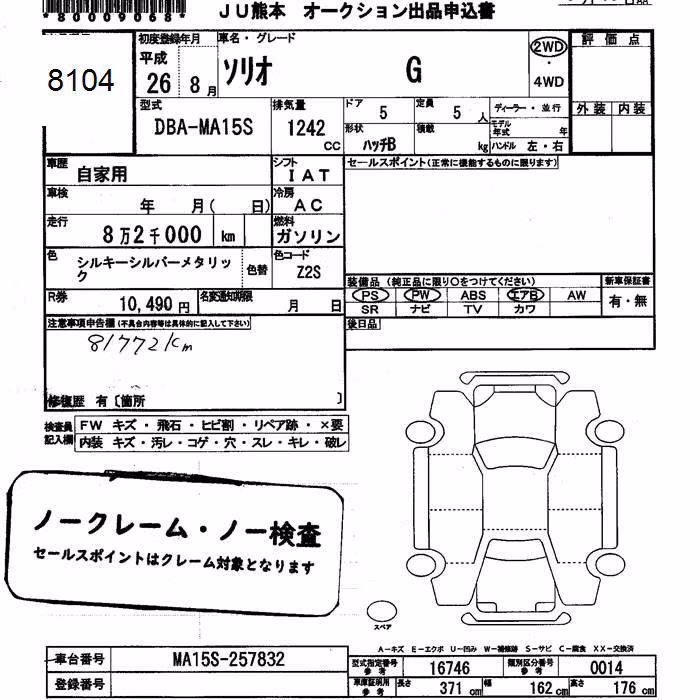 *80009068*
JU熊本 オークション出品申込書
8104
初度登録年月
平成
26 8月
車名・グレード
ソリオ G
2WD
・
4WD
評価点
外装 内装
型式
DBA-MA15S
排気量
1242
CC
ドア 5
定員 5 人
ディーラー・並行
形状
ハッチB
積載 kg
モデル年式 年
ハンドル 左・右
車歴
自家用
シフト
IAT
セールスポイント(正常に機能するものに限ります)
車検
年 月( 日)
冷房
AC
走行
8万2千000 km
燃料
ガソリン
色
シルキーシルバーメタリック
色替
色コード
Z2S
装備品(純正品に限り○をつけてください)
新車保証書
PS PW ABS エアB AW
有・無
SR ナビ TV カワ
R券
10,490円
名変通知期限
月 日
後日品
注意事項申告欄(不具合内容等は具体的に記入して下さい)
81772km
修復歴 有〔箇所 〕
検査員記入欄
FW キズ・飛石・ヒビ割・リペア跡・×要
内装 キズ・汚レ・コゲ・穴・スレ・キレ・破レ
ノークレーム・ノー検査
セールスポイントはクレーム対象となります
スペア
A-キズ E-エクボ U-凹み W-補修跡 S-サビ C-腐食 XX-交換済
車台番号
MA15S-257832
型式指定番号
参考
16746
類別区分番号
参考
0014
登録番号
車庫証明用
参考
長さ 371 cm
幅 162 cm
高さ 176 cm